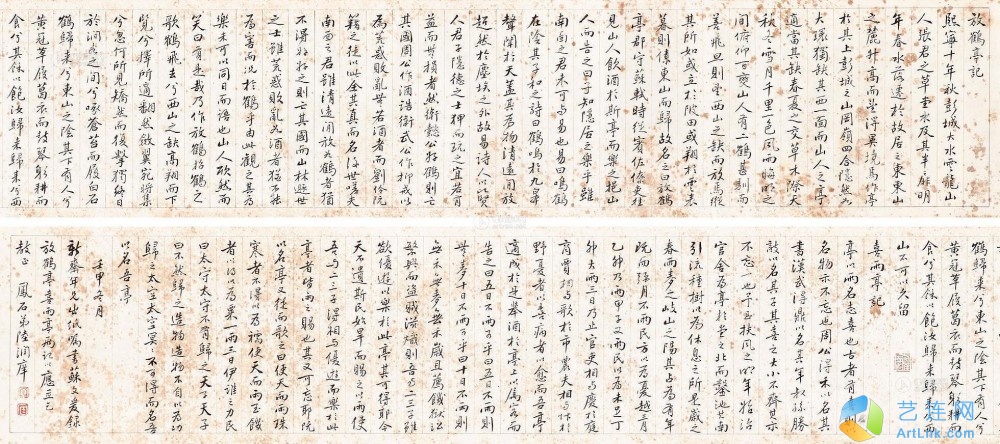 放鶴亭記
熙寧十年秋彭城大水雲龍山
人張君之草堂水及其半扉明
年春水落遷於故居之東東山
之麓升高而望得異境焉作亭
於其上彭城之山岡嶺四合隱然如
大環獨缺其西一面而山人之亭
適當其缺春夏之交草木際天
秋冬雪月千里一色風雨晦明之
間俯仰百變山人有二鶴甚馴而
善飛旦則望西山之缺而放焉縱
其所如或立於陂田或翔於雲表
暮則傃東山而歸故名之曰放鶴
亭郡守蘇軾時從賓佐僚吏往
見山人飲酒於斯亭而樂之挹山
人而告之曰子知隱居之樂乎雖
南面之君未可與易也易曰鳴鶴
在陰其子和之詩曰鶴鳴於九皋
聲聞於天蓋其為物清遠閒放
超然於塵埃之外故易詩人以比賢
人君子隱德之士狎而玩之宜若有
益而無損者然衛懿公好鶴則亡
其國周公作酒誥衛武公作抑戒以
為荒惑敗亂無若酒者而劉伶阮
籍之徒以此全其真而名後世嗟夫
南面之君雖清遠閒放如鶴者猶
不得好好之則亡其國而山林遯世
之士雖荒惑敗亂如酒者猶不能
為害而況於鶴乎由此觀之其為
樂未可以同日而語也山人欣然而
笑曰有是哉乃作放鶴招鶴之
歌曰鶴飛去兮西山之缺高翔而下
覽兮擇所適翻然斂翼宛將集
兮忽何所見矯然而復擊獨終日
於澗谷之間兮啄蒼苔而履白石
鶴歸來兮東山之陰其下有人兮
黃冠草履葛衣而鼓琴躬耕而
食兮其餘以飽汝歸來歸來兮西
鶴歸來兮東山之陰其下有人兮
黃冠草履葛衣而鼓琴躬耕而
食兮其餘以飽汝歸來歸來兮西
山不可以久留
喜雨亭記
亭以雨名志喜也古者有喜則以
名物示不忘也周公得禾以名其
書漢武得鼎以名其年叔孫勝
敵以名其子其喜之大小不齊其示
不忘一也予至扶風之明年始治
官舍為亭於堂之北而鑿池其南
引流種樹以為休息之所是歲之
春雨麥於岐山之陽其占為有年
既而彌月不雨民方以為憂越三月
乙卯乃雨甲子又雨民以為未足丁
卯大雨三日乃止官吏相與慶於庭
商賈相與歌於市農夫相與忭於
野憂者以喜病者以愈而吾亭
適成於是舉酒於亭上以屬客而
告之曰五日不雨可乎曰五日不雨則
無麥十日不雨可乎曰十日不雨則
無禾無麥無禾歲且薦饑獄訟
繁興而盜賊滋熾則吾與二三子雖
欲優游以樂於此亭其可得耶今
天不遺斯民始旱而賜之以雨使
吾與二三子得相與優游而樂於此
亭者皆雨之賜也其又可忘耶既
以名亭又從而歌之曰使天而雨珠
寒者不得以為襦使天而雨玉饑
者不得以為粟一雨三日伊誰之力民
曰太守太守不有歸之天子天子
曰不然歸之造物造物不自以為功
歸之太空太空冥冥不可得而名吾
以名吾亭
壬申冬月
新齋年兄出此紙囑書蘇文爰錄
放鶴喜雨亭兩記以應並乞
教正 鳳石弟陸潤庠
艺连网
ArtLink.com